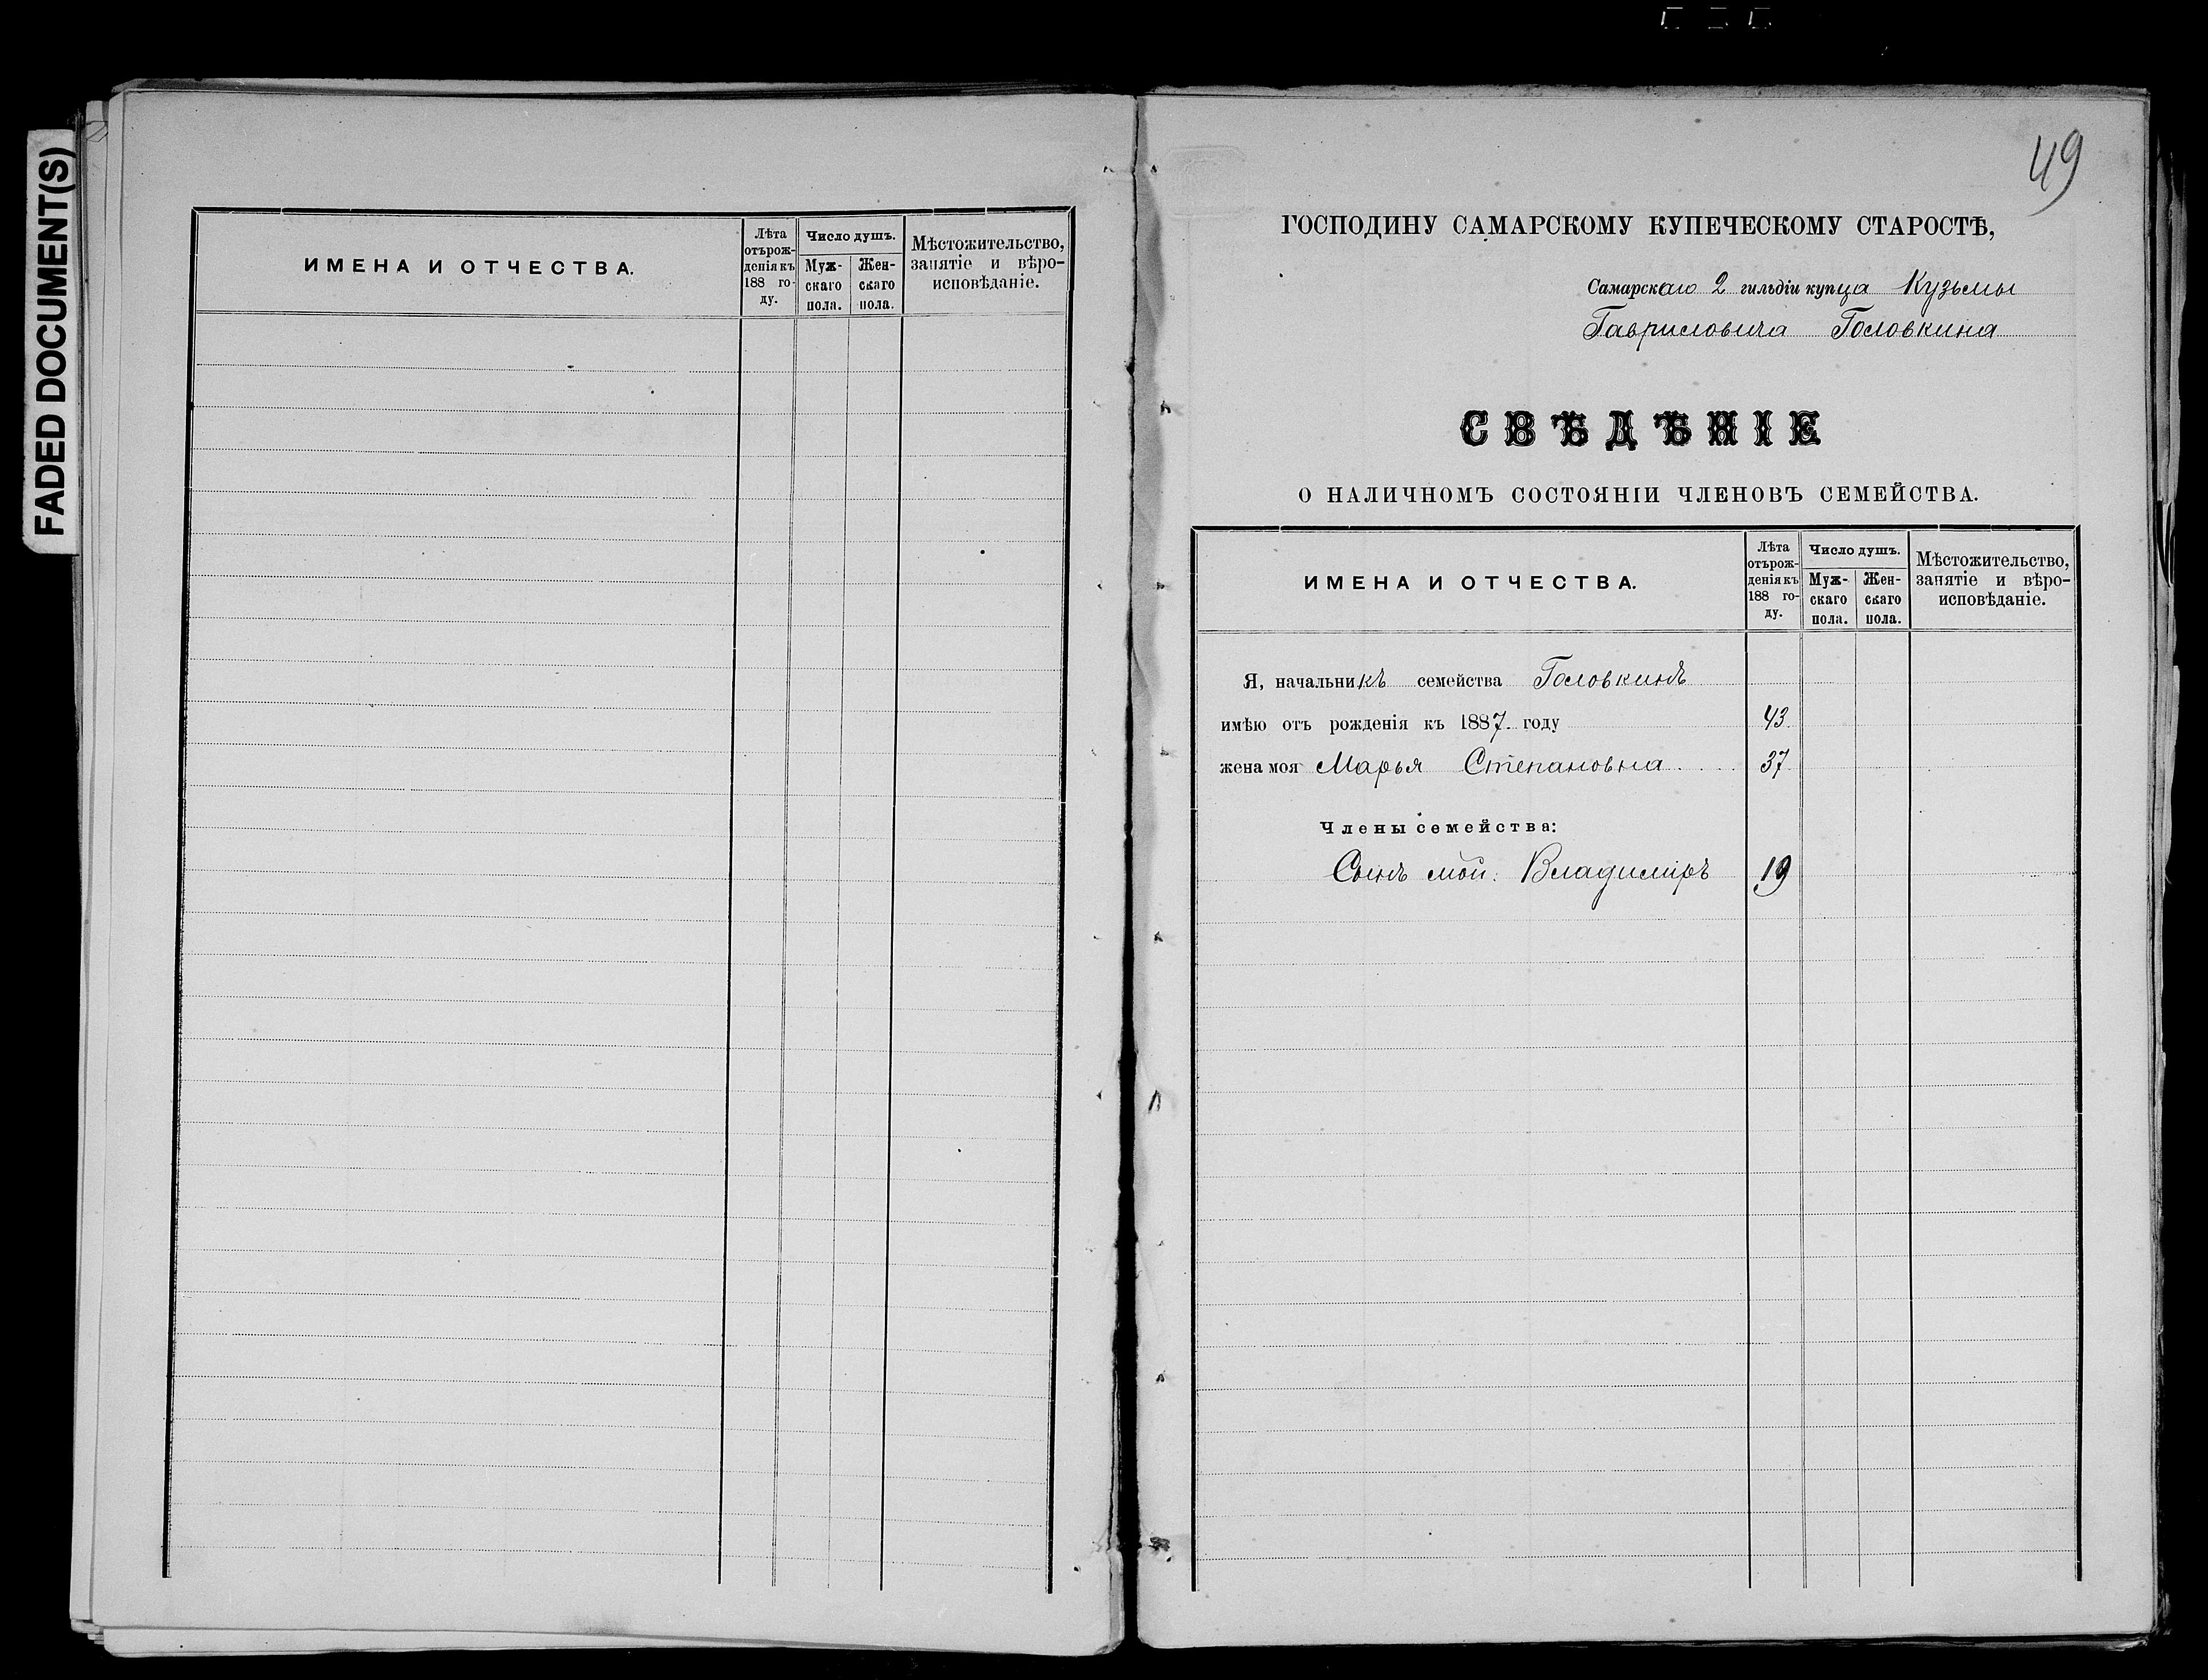 FADED DOCUMENT(S)
ИМЕНА И ОТЧЕСТВА.
Лѣта отърожденія къ 188 году.
Число душъ.
Мужскаго пола.
Женскаго пола.
Мѣстожительство, занятіе и вѣроисповѣданіе.
49
ГОСПОДИНУ САМАРСКОМУ КУПЕЧЕСКОМУ СТАРОСТѢ,
Самарскаго 2 гильдіи купца Кузьмы
Гавриловича Головкина
СВѢДѢНІЕ
О НАЛИЧНОМЪ СОСТОЯНІИ ЧЛЕНОВЪ СЕМЕЙСТВА.
ИМЕНА И ОТЧЕСТВА.
Лѣта отърожденія къ 188 году.
Число душъ.
Мужскаго пола.
Женскаго пола.
Мѣстожительство, занятіе и вѣроисповѣданіе.
Я, начальникъ семейства Головкинъ
имѣю отъ рожденія къ 1887 году 43
жена моя Марья Степановна 37
Члены семейства:
Сынъ мой: Владиміръ 19